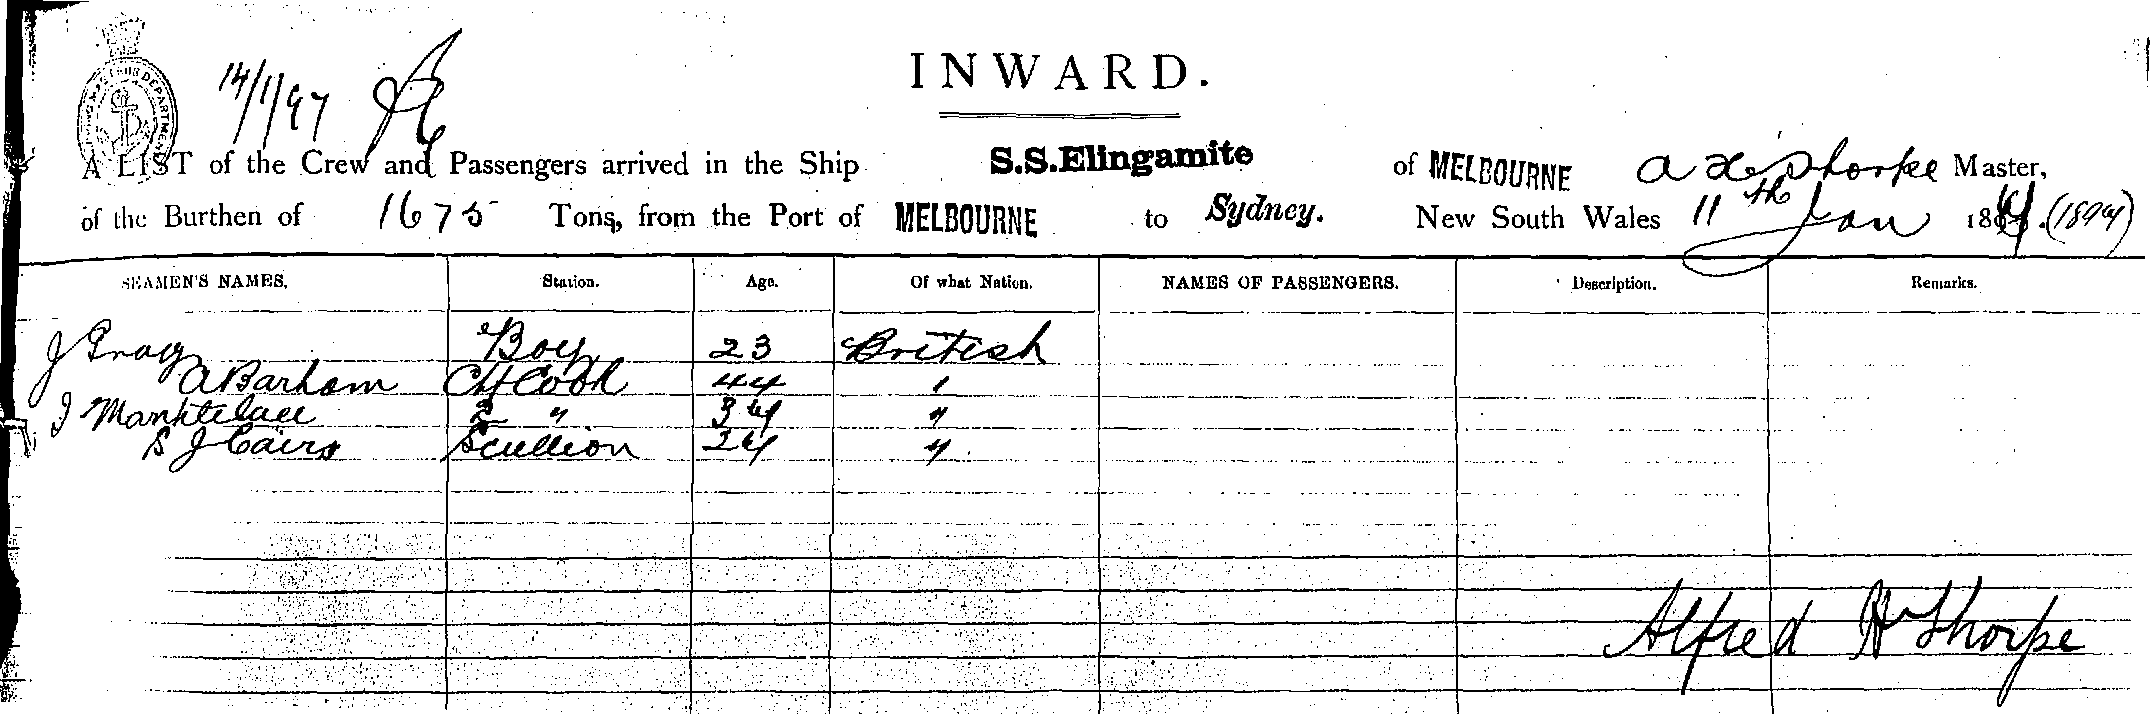 14/1/97
INWARD.
A LIST of the Crew and Passengers arrived in the Ship S.S.Elingamite of MELBOURNE A H Thorpe Master,
of the Burthen of 1675 Tons, from the Port of MELBOURNE to Sydney. New South Wales 11th Jan 1894. (1894)
SEAMEN'S NAMES. Station. Age. Of what Nation. NAMES OF PASSENGERS. Description. Remarks.
J Gray Boy 23 British
A Barham Ch Cook 44 "
J 2 " 34 "
S J Cairs Scullion 24 "
Alfred H Thorpe